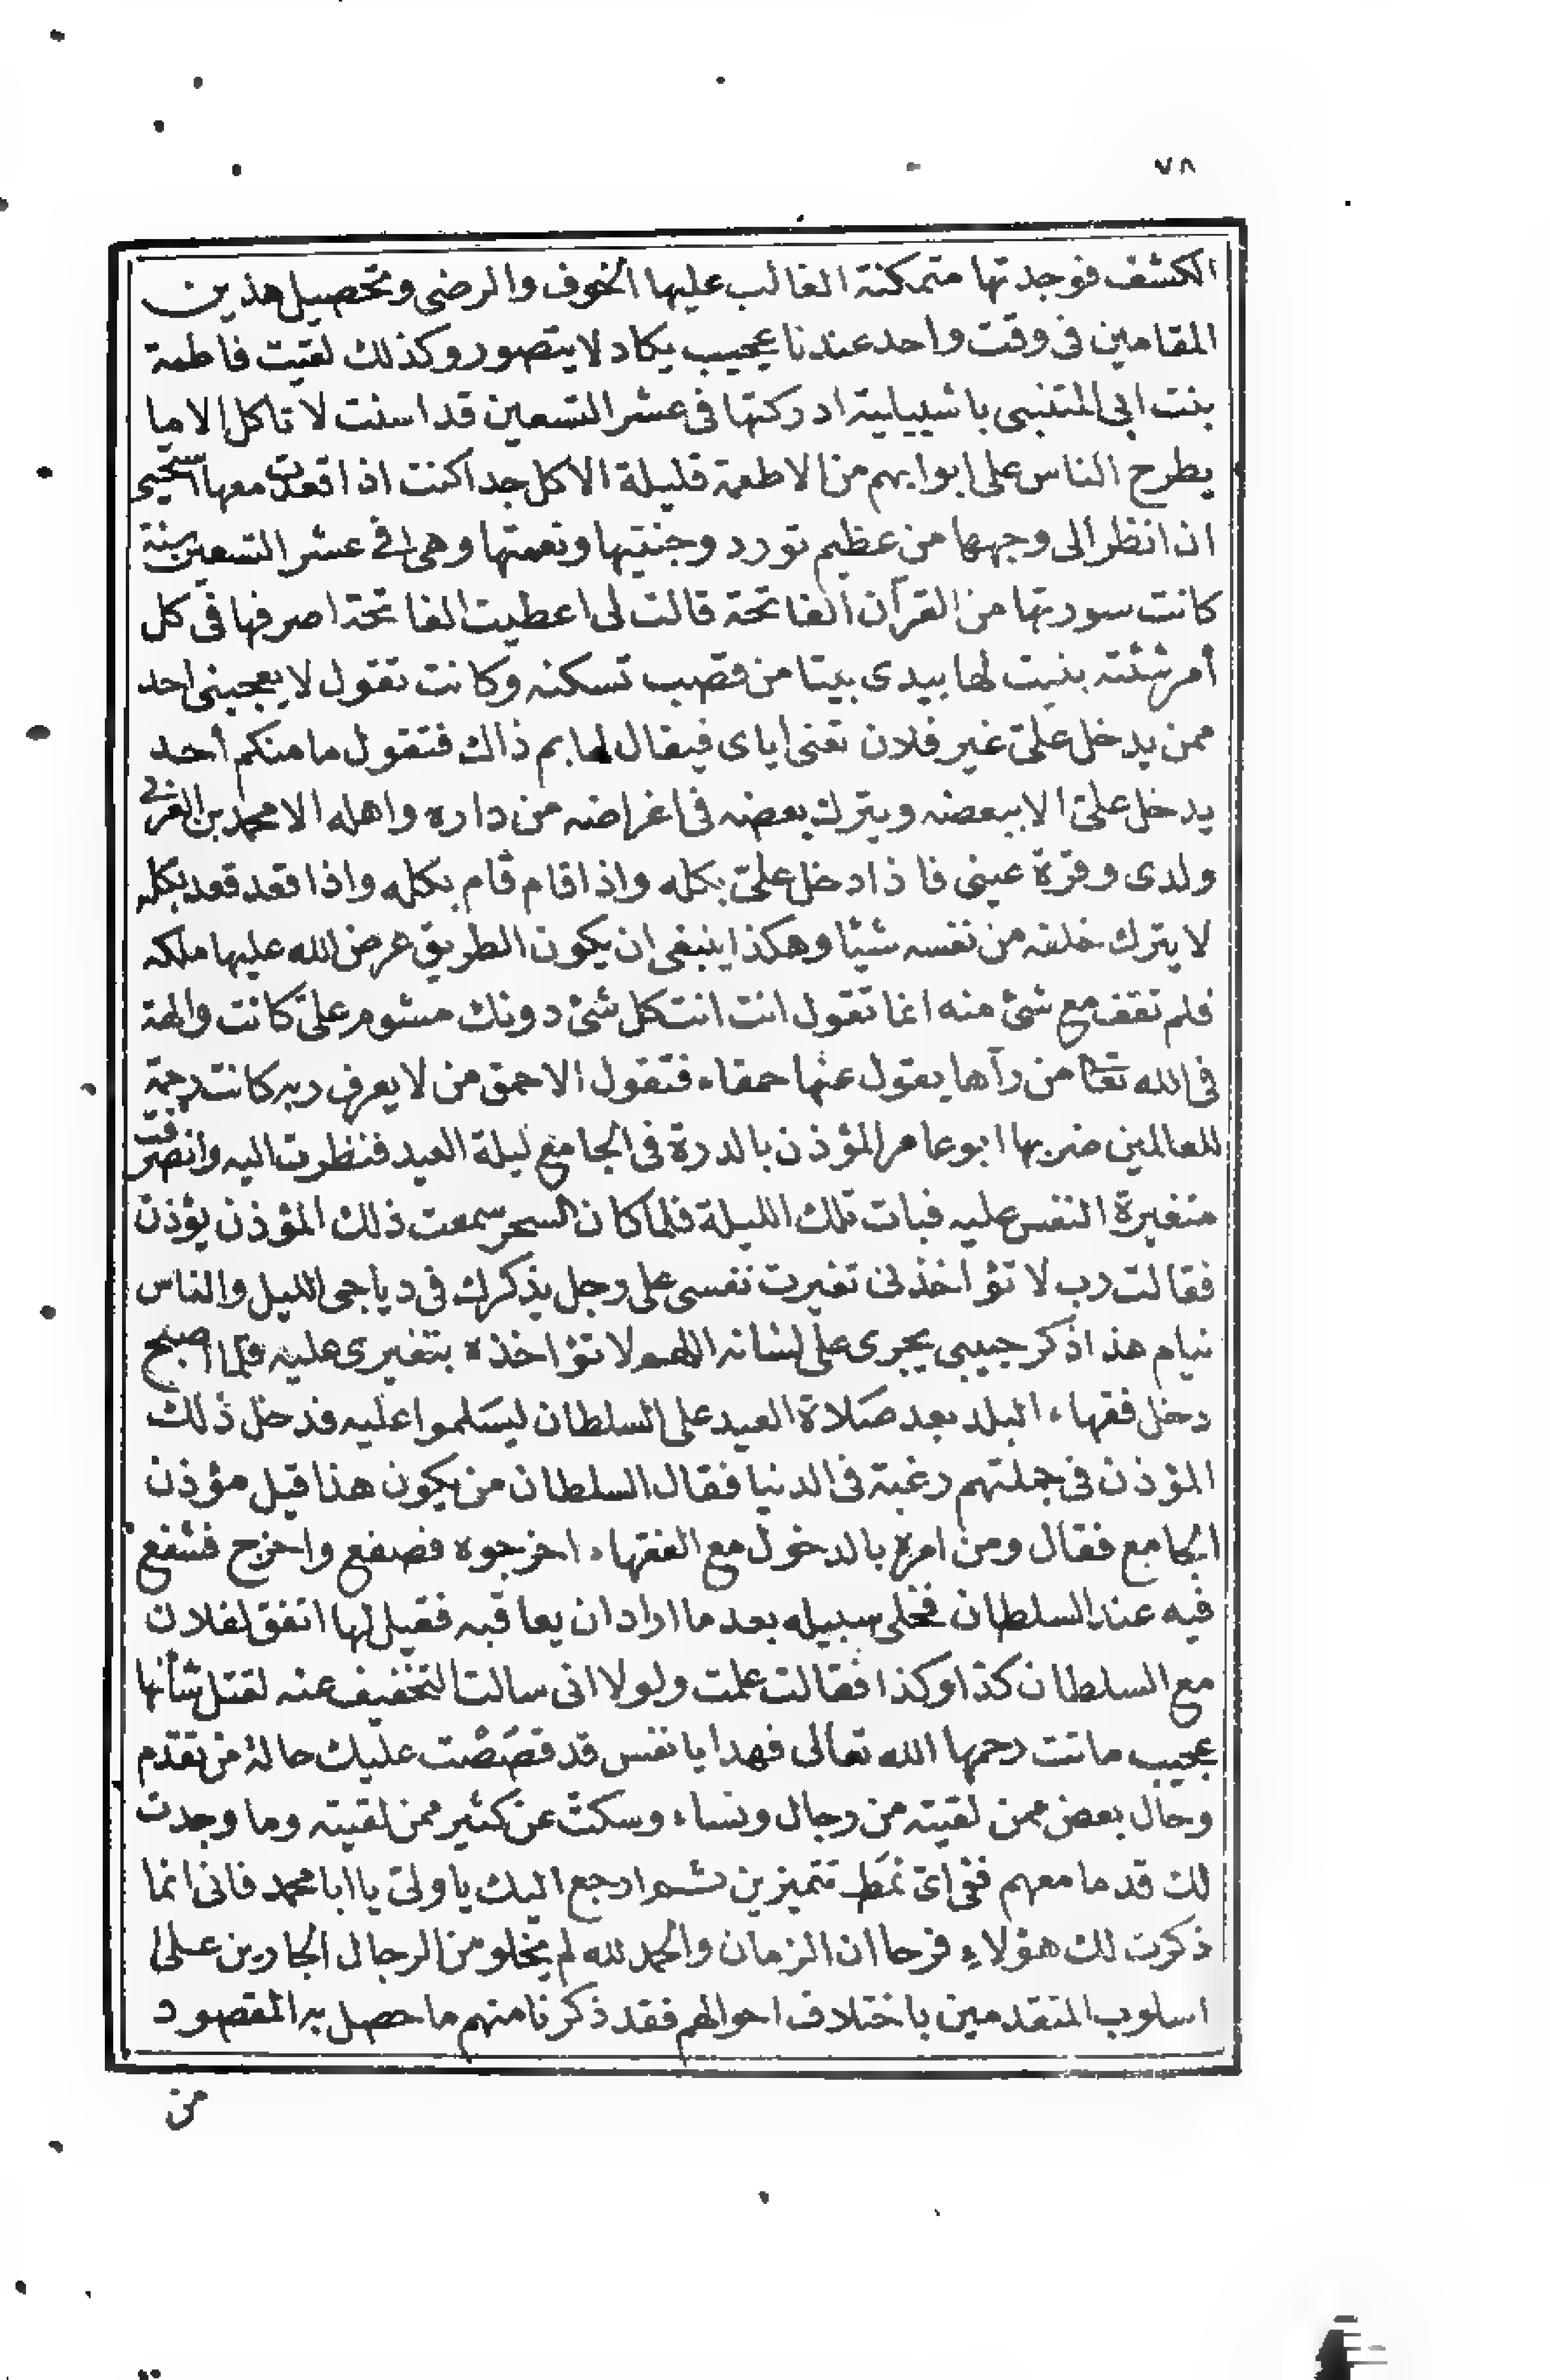 ٧٨
الكشف فوجدتها متمكنة الغالب عليها الخوف والرضى وتحصيل هذين
المقامين فى وقت واحد عندنا عجيب يكاد لا يتصور وكذلك لقيت فاطمة
بنت ابى المتنبى باشبيلية ادركتها فى عشر التسعين قد اسنت لا تاكل الا ما
يطرح الناس على ابوابهم من الاطعمة قليلة الاكل جدا كنت اذا قعدت معها استحيى
ان انظر الى وجهها من عظيم تورد وجنتيها ونعمتها وهى فى عشر التسعين سنة
كانت سورتها من القرآن الفاتحة قالت لى اعطيت الفاتحة اصرفها فى كل
أمر شئته بنيت لها بيدى بيتا من قصب تسكنه وكانت تقول لا يعجبنى احد
ممن يدخل علىّ غير فلان تعنى اياى فيقال لها بم ذاك فتقول ما منكم أحد
يدخل علىّ الا ببعضه ويترك بعضه فى اغراضه من داره واهله الا محمد بن العربى
ولدى وقرة عينى فاذا دخل علىّ بكله واذا قام قام بكله واذا قعد قعد بكله
لا يترك خلفه من نفسه شيئا وهكذا ينبغى ان يكون الطريق عرض الله عليها ملكه
فلم تقف مع شئ منه انما تقول انت انت كل شئ دونك مشوم علىّ كانت والهة
فى الله تعا من رآها يقول عنها حمقاء فتقول الاحمق من لا يعرف ربه كانت رحمة
للعالمين ضربها ابو عامر المؤذن بالدرة فى الجامع ليلة العيد فنظرت اليه وانصرفت
متغيرة النفس عليه فبات تلك الليلة فلما كان السحر سمعت ذلك المؤذن يؤذن
فقالت رب لا تؤاخذنى تغيرت نفسى على رجل يذكرك فى دياجى الليل والناس
نيام هذا ذكر حبيبى يجرى على لسانه اللهم لا تؤاخذه بتغيرى عليه فلما اصبح
دخل فقهاء البلد بعد صلاة العيد على السلطان ليسلموا عليه فدخل ذلك
المؤذن فى جملتهم رغبة فى الدنيا فقال السلطان من يكون هذا قيل مؤذن
الجامع فقال ومن امره بالدخول مع الفقهاء اخرجوه فصفع واخرج فشفع
فيه عند السلطان فخلى سبيله بعد ما اراد ان يعاقبه فقيل لها اتفق لفلان
مع السلطان كذا وكذا فقالت علمت ولولا انى سالت التخفيف عنه لقتل شأنها
عجيب ماتت رحمها الله تعالى فهذا يا نفس قد قصصت عليك حالة من تقدم
وحال بعض ممن لقيته من رجال ونساء وسكتّ عن كثير ممن لقيته وما وجدت
لك قدما معهم ففى اىّ نمط تتميزين ثم ارجع اليك يا ولىّ يا ابا محمد فانى انما
ذكرت لك هؤلاءِ فرحا ان الزمان والحمد لله لم يخلو من الرجال الجارين على
اسلوب المتقدمين باختلاف احوالهم فقد ذكرنا منهم ما حصل به المقصود
من